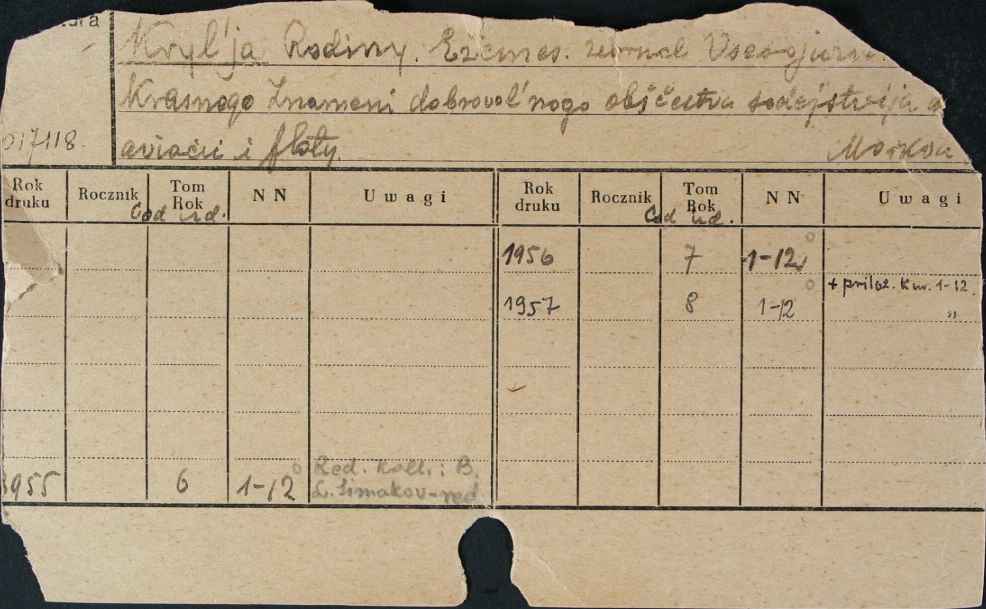 Kryl'ja Rodiny. Ežemes. žurnal
Krasnogo Znameni dobrovol'nogo obščestva sodejstvija
017118.
aviacii i floty. Moskva
Rok druku Rocznik Tom Rok N N Uwagi Rok druku Rocznik Tom Rok N N Uwagi
God izd. God izd.
1956 7 1-12
+ prilož. k nr. 1-12.
1957 8 1-12 "
1955 6 1-12 Red. koll.: B.
L. Simakov-red